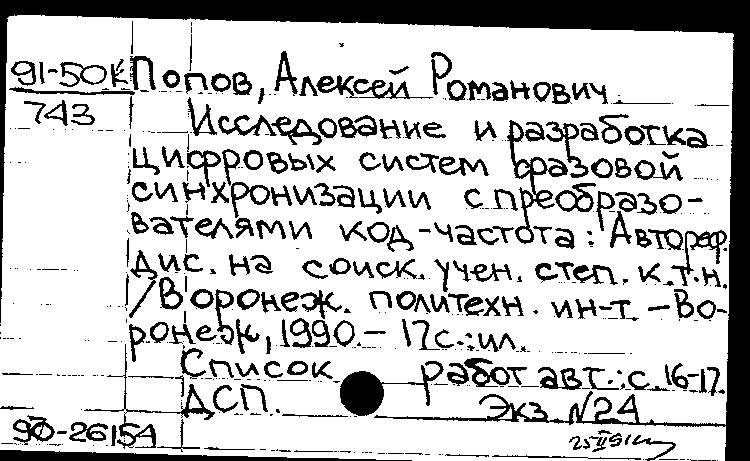 91-50К Попов, Алексей Романович.
743
Исследование и разработка
цифровых систем фазовой
синхронизации с преобразо-
вателями код-частота: Автореф.
дис. на соиск. учен. степ. к.т.н.
/Воронеж. политехн. ин-т. – Во-
ронеж, 1990. – 17с.: ил.
Список работ авт.: с. 16-17.
ДСП. Экз. №24.
90-26154